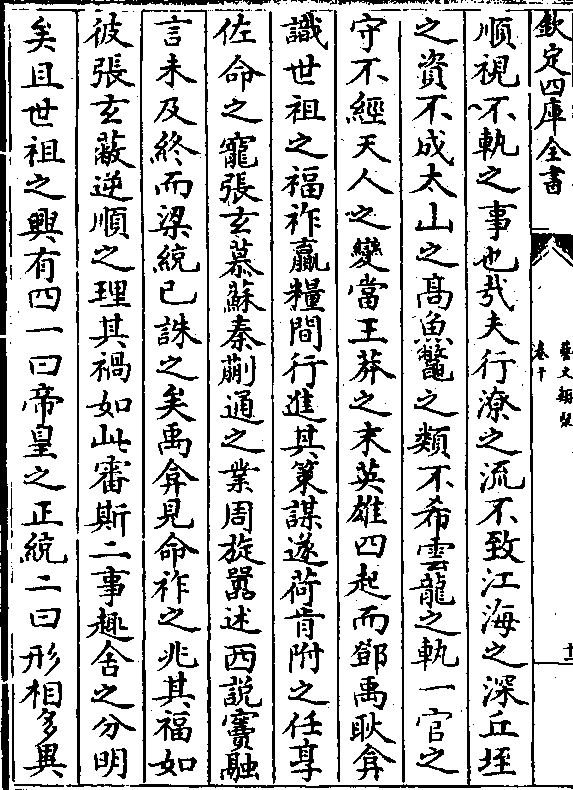 欽定四庫全書
藝文類聚
卷十
十二
順視不軌之事也哉夫行潦之流不致江海之深丘垤
之資不成太山之髙魚鼈之類不希雲龍之軌一官之
守不經天人之變當王莽之末英雄四起而鄧禹耿弇
識世祖之福祚贏糧間行進其策謀遂荷胥附之任享
佐命之寵張玄慕蘇秦蒯通之業周旋嚻述西説竇融
言未及終而梁統已誅之矣禹弇見命祚之兆其福如
彼張玄蔽逆順之理其禍如此審斯二事趣舍之分明
矣且世祖之興有四一曰帝皇之正統二曰形相多異